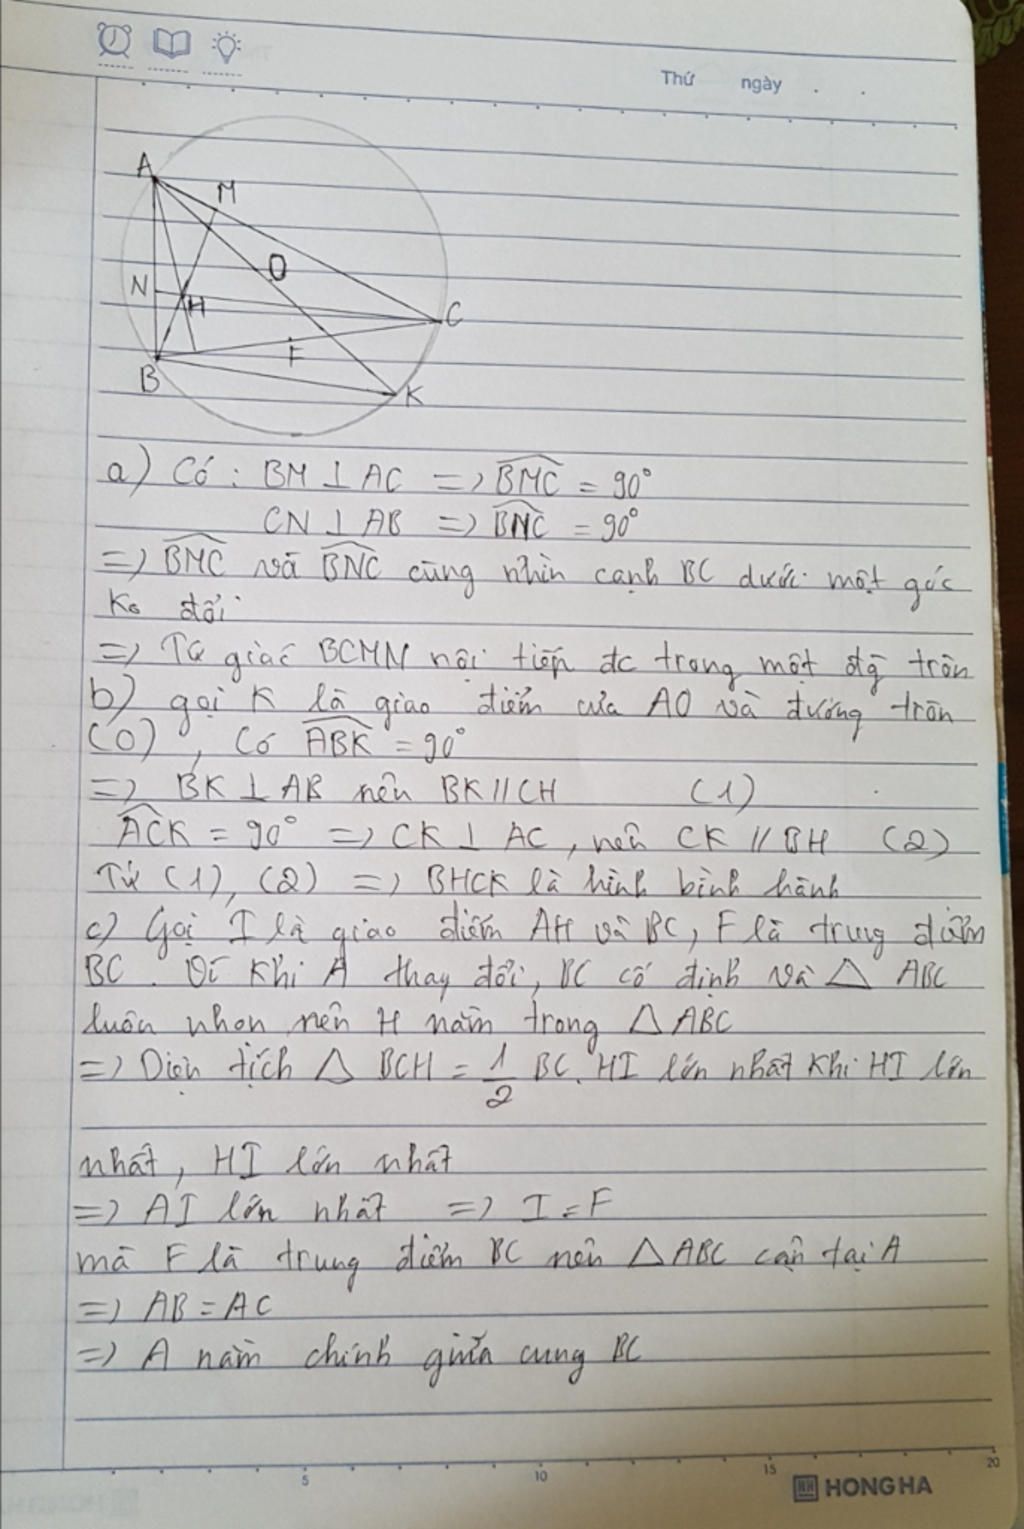 Thứ ngày . .
A
M
O
N
H
C
F
B
K
a) Có : BM ⊥ AC => BMC = 90°
CN ⊥ AB => BNC = 90°
=> BMC và BNC cùng nhìn cạnh BC dưới một góc
Ko đổi
=> Tứ giác BCMN nội tiếp đc trong một đg tròn
b) gọi K là giao điểm của AO và đường tròn
(O) , Có ABK = 90°
=> BK ⊥ AB nên BK // CH (1)
ACK = 90° => CK ⊥ AC , nên CK // BH (2)
Từ (1), (2) => BHCK là hình bình hành
c) Gọi I là giao điểm AH và BC, F là trung điểm
BC . Vì Khi A thay đổi, BC cố định và △ ABC
luôn nhọn nên H nằm trong △ ABC
=> Diện tích △ BCH = 1/2 BC. HI lớn nhất Khi HI lớn
nhất, HI lớn nhất
=> AI lớn nhất => I = F
mà F là trung điểm BC nên △ ABC cân tại A
=> AB = AC
=> A nằm chính giữa cung BC
5 10 15 20
HH HONG HA